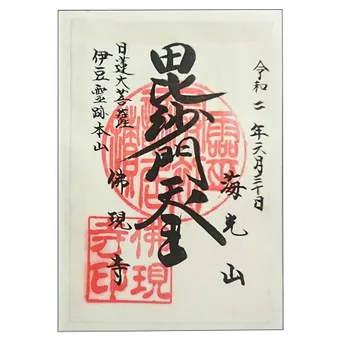 令和二年六月三十日
海光山
毘沙門天王
佛現寺
日蓮大菩薩
伊豆霊跡本山
佛現
寺印